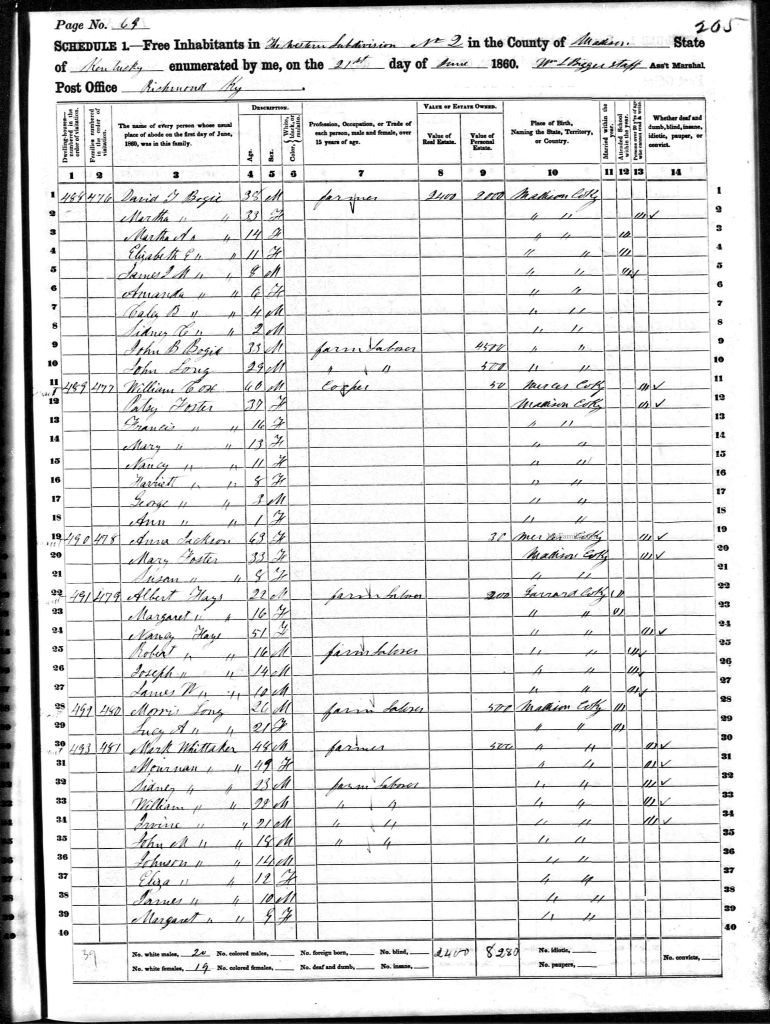 Page No. 69
205
SCHEDULE 1.—Free Inhabitants in The Western Subdivision No 2 in the County of Madison State
of Kentucky enumerated by me, on the 21st day of June 1860. Ass't Marshal
Post Office Richmond Ky
Dwelling-houses—numbered in the order of visitation. Families numbered in the order of visitation. The name of every person whose usual place of abode on the first day of June, 1860, was in this family. DESCRIPTION. Age. Sex. Color, {White, black, or mulatto. Profession, Occupation, or Trade of each person, male and female, over 15 years of age. VALUE OF ESTATE OWNED. Value of Real Estate. Value of Personal Estate. Place of Birth, Naming the State, Territory, or Country. Married within the year. Attended School within the year. Persons over 20 y'rs of age who cannot read & write. Whether deaf and dumb, blind, insane, idiotic, pauper, or convict.
1 2 3 4 5 6 7 8 9 10 11 12 13 14
1 488 476 David T Bogie 38 M farmer 2400 2000 Madison Co Ky 1
2 Martha " " 33 F " " /// ✓ 2
3 Martha A " " 14 F " " /// 3
4 Elizabeth E " " 11 F " " /// 4
5 James I M " " 8 M " " /// 5
6 Amanda " " 6 F " " 6
7 Caley B " " 4 M " " 7
8 Sidney C " " 2 M " " 8
9 John B Bogie 33 M farm Laborer 4500 " " 9
10 John Long 29 M " " 500 " " 10
11 489 477 William Cose 60 M Cooper 50 Mercer Co Ky /// ✓ 11
12 Patsy Foster 37 F Madison Co Ky /// ✓ 12
13 Francis " " 16 F " " 13
14 Mary " " 13 F " " 14
15 Nancy " " 11 F " " 15
16 Harriett " " 8 F " " 16
17 George " " 3 M " " 17
18 Ann " " 1 F " " 18
19 490 478 Anna Jackson 63 F 30 Mercer Co Ky /// ✓ 19
20 Mary Foster 33 F Madison Co Ky /// ✓ 20
21 Susan " " 8 F " " 21
22 491 479 Albert Hays 22 M farm Laborer 200 Garrard Co Ky /// 22
23 Margaret " " 16 F " " /// 23
24 Nancy Hays 51 F " " /// ✓ 24
25 Robert " " 16 M farm Laborer " " /// 25
26 Joseph " " 14 M " " /// 26
27 James W " " 10 M " " /// 27
28 491 480 Morris Long 26 M farm Laborer 500 Madison Co Ky /// 28
29 Lucy A " " 21 F " " /// 29
30 493 481 Mark Whittaker 48 M farmer 500 " " /// ✓ 30
31 Mournan " " 49 F " " /// ✓ 31
32 Sidney " " 23 M farm Laborer " " /// ✓ 32
33 William " " 22 M " " " " /// ✓ 33
34 Irvine " " 21 M " " " " /// ✓ 34
35 John M " " 18 M " " " " 35
36 Johnson " " 14 M " " 36
37 Eliza " " 12 F " " 37
38 James " " 10 M " " 38
39 Margaret " " 9 F " " 39
40 40
39 No. white males, 20 No. colored males, No. foreign born, No. blind, 2400 8280 No. idiotic, No. convicts,
No. white females, 19 No. colored females, No. deaf and dumb, No. insane, No. paupers,